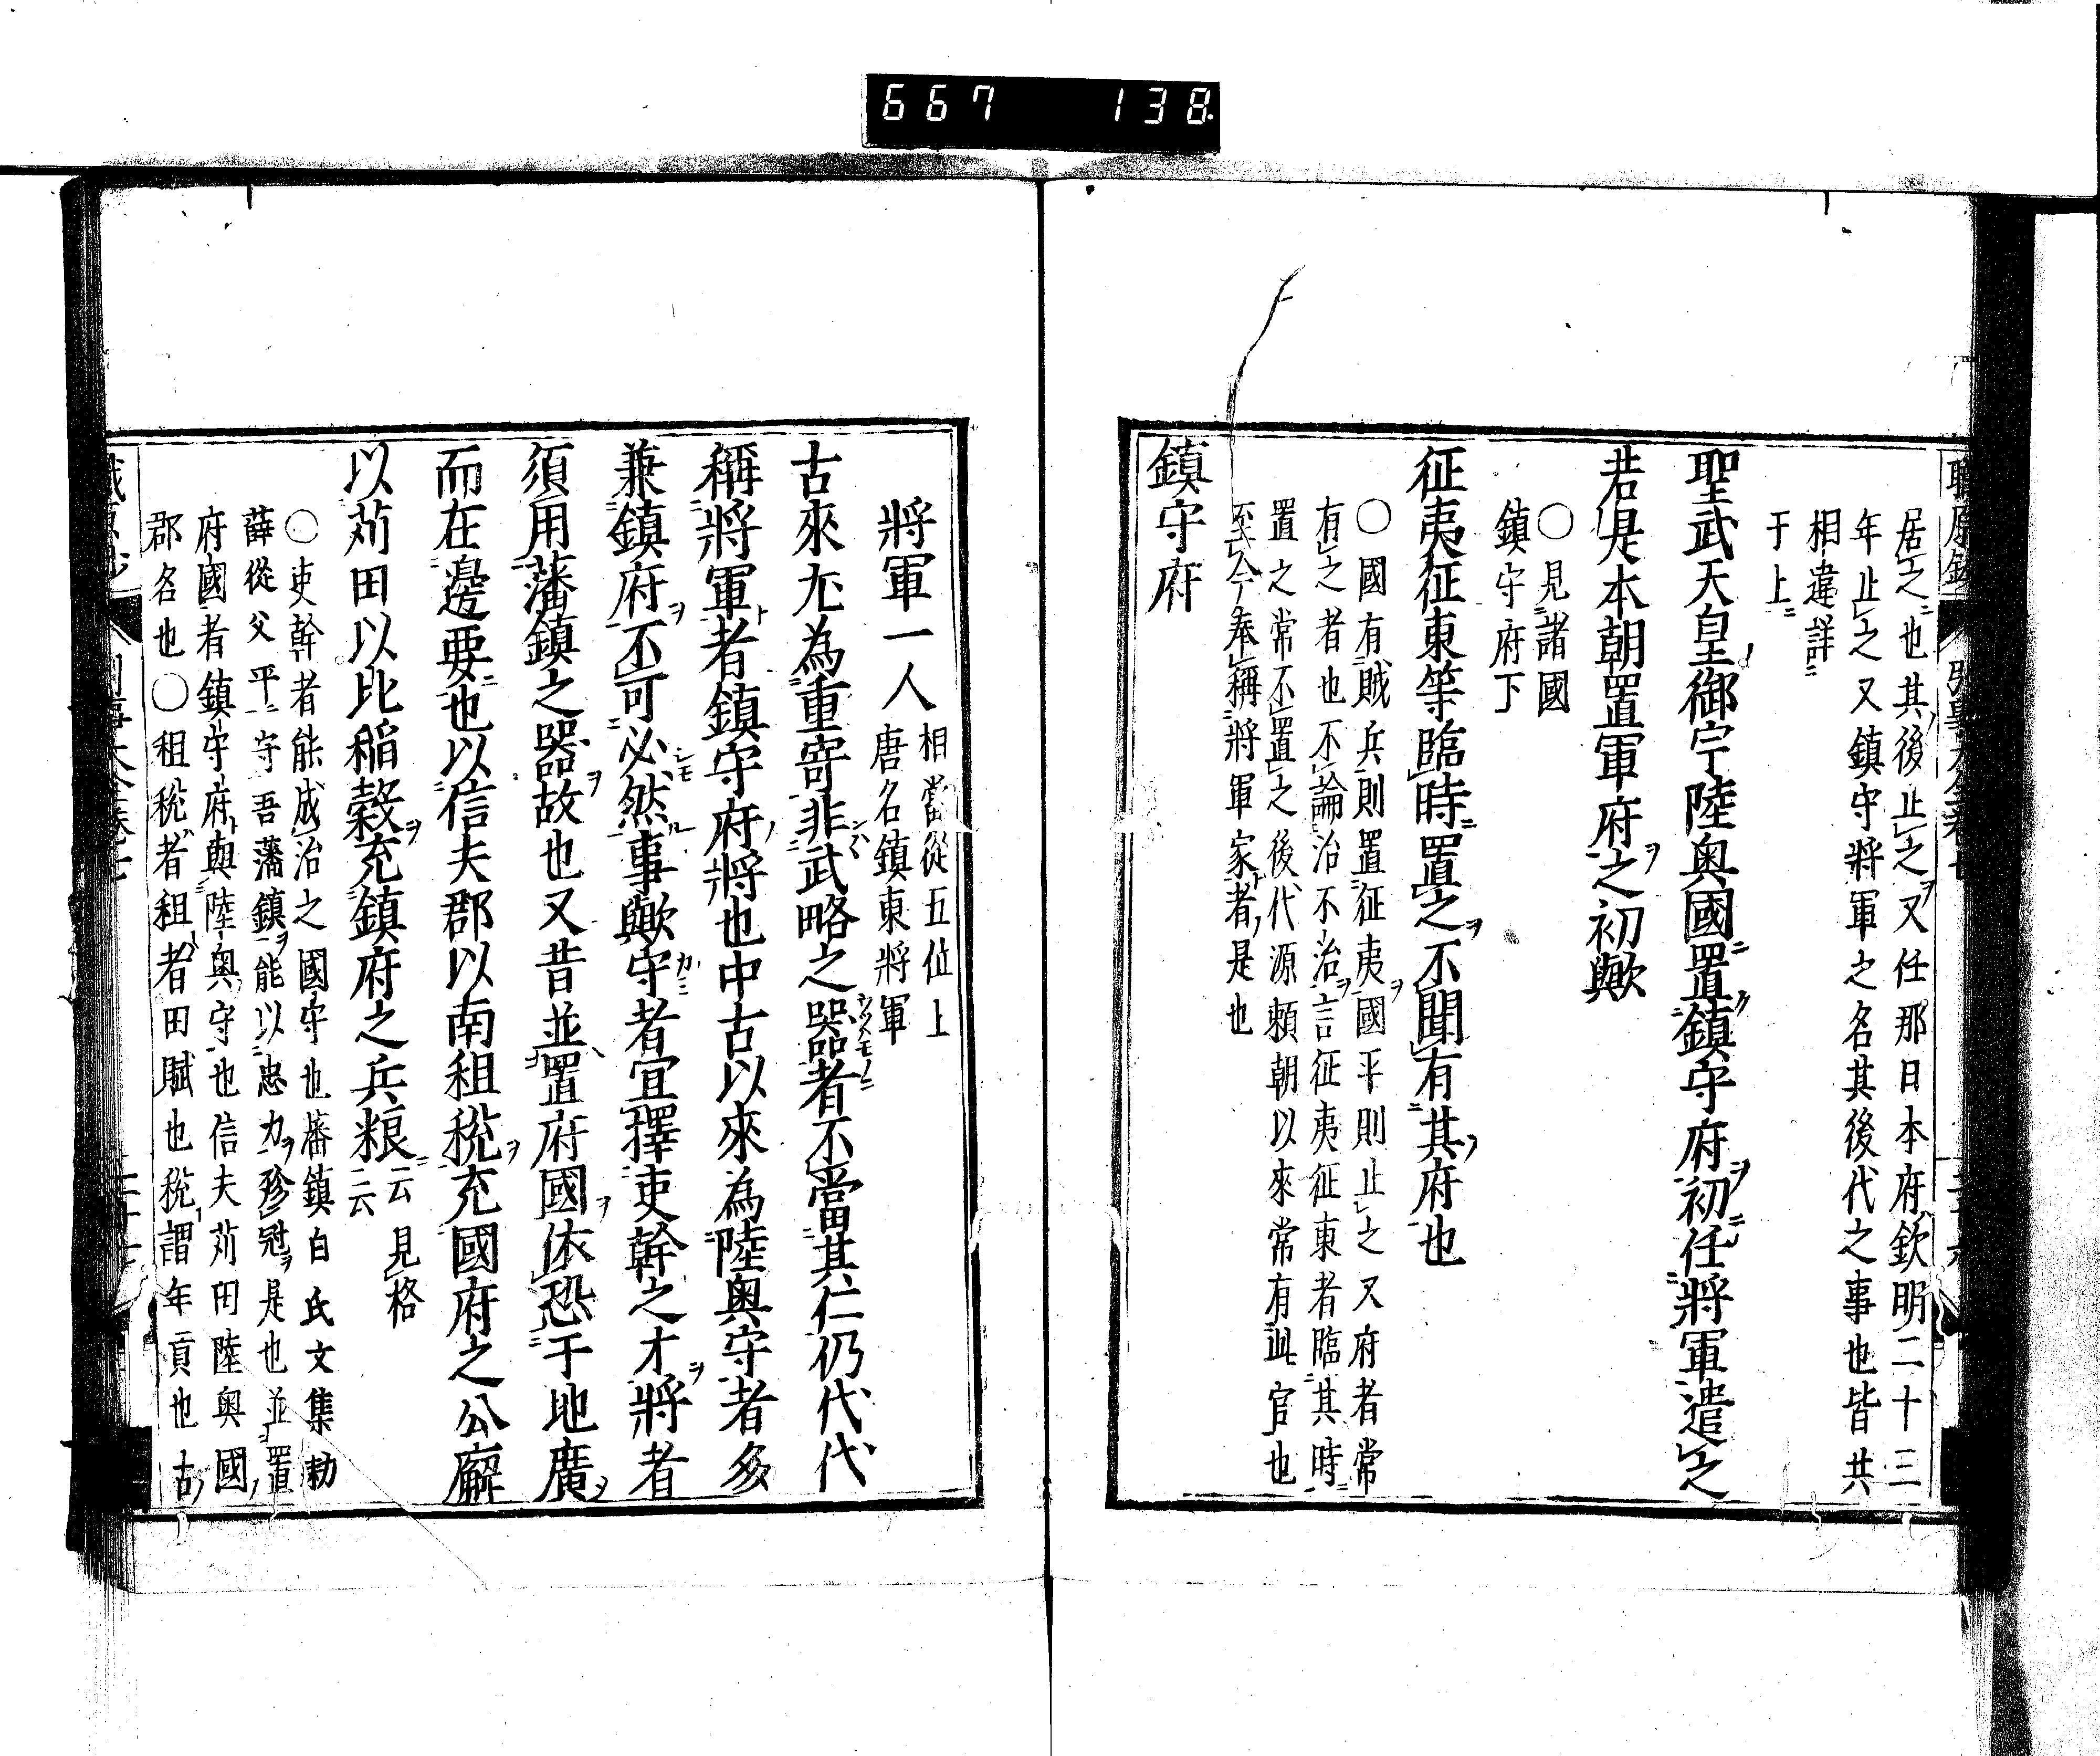 667 138
居之也其後止之又任那日本府欽明二十三
年止之又鎮守將軍之名其後代之事也皆共
相違詳
于上
聖武天皇御宇陸奥國置鎮守府初任將軍遣之
若是本朝置軍府之初歟
○見諸國
鎮守府下
征夷征東等臨時置之不聞有其府也
○國有賊兵則置征夷國平則止之又府者常
有之者也不論治不治言征夷征東者臨其時
置之常不置之後代源頼朝以來常有此官也
至今奉稱將軍家者是也
鎮守府
將軍一人 相當從五位上
唐名鎮東將軍
古來尤為重寄非武略之器者不當其仁仍代代
稱將軍者鎮守府將也中古以來為陸奥守者多
兼鎮府不可必然事歟守者宜擇吏幹之才將者
須用藩鎮之器故也又昔並置府國依恐于地廣
而在邊要也以信夫郡以南租税充國府之公廨
以苅田以北稲穀充鎮府之兵粮云云 見格
○吏幹者能成治之國守也藩鎮白氏文集勅
薛從父平守吾藩鎮能以忠力殄冦是也並置
府國者鎮守府與陸奥守也信夫苅田陸奥國
郡名也○租税者租者田賦也税謂年貢也古